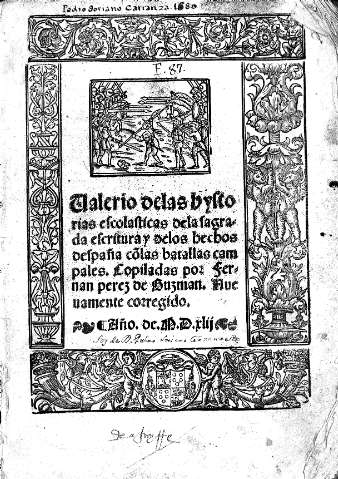 Pedro Soriano Carranza. 1680
F. 87.
Valerio delas hysto
rias escolasticas dela sagra
da escritura y delos hechos
despaña cõlas batallas cam
pales. Copiladas por Fer-
nan perez de Guzman. Nue
uamente corregido.
Año. de. M.D.xlij
Soy de D. Pedro Soriano Carranza